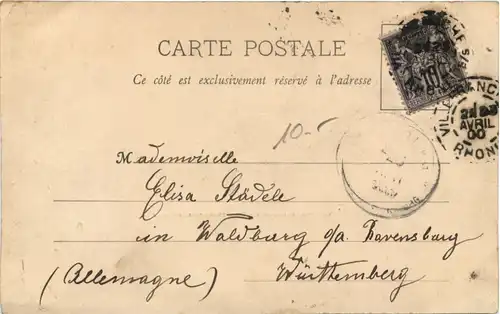 CARTE POSTALE
Ce côté est exclusivement réservé à l'adresse
10
VILLEFRANCHE
AVRIL
00
RHONE
10-
Mademoiselle
Elisa Städele
in Waldburg o/a. Ravensburg
Württemberg
(Allemagne)